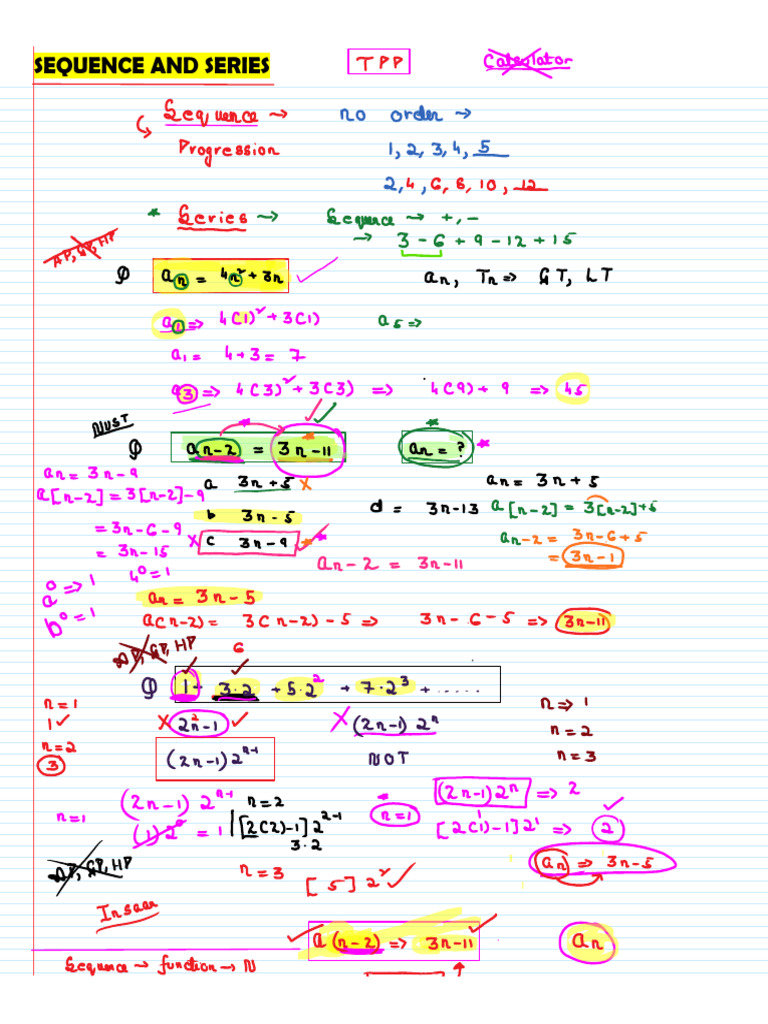 SEQUENCE AND SERIES
TPP
Calculator
Sequence → no order →
Progression 1, 2, 3, 4, 5
2, 4, 6, 8, 10, 12
* Series → Sequence → +, −
→ 3 − 6 + 9 − 12 + 15
AP, GP, HP
Q aₙ = 4n² + 3n ✓ aₙ, Tₙ ⇒ GT, LT
a₁ ⇒ 4(1)² + 3(1) a₅ ⇒
a₁ = 4 + 3 = 7
a₃ ⇒ 4(3)² + 3(3) ⇒ 4(9) + 9 ⇒ 45
NUST
Q aₙ₋₂ = 3n − 11 aₙ = ? *
aₙ = 3n − 9
a 3n + 5 × aₙ = 3n + 5
a[n−2] = 3[n−2] − 9
b 3n − 5 d = 3n − 13 a[n−2] = 3[n−2] + 5
= 3n − 6 − 9
× c 3n − 9 aₙ₋₂ = 3n − 6 + 5
= 3n − 15
= 3n − 1
aₙ₋₂ = 3n − 11
a⁰ ⇒ 1 4⁰ = 1
b⁰ = 1
aₙ = 3n − 5
a(n−2) = 3(n−2) − 5 ⇒ 3n − 6 − 5 ⇒ 3n − 11
AP, GP, HP 6
Q 1 + 3·2 + 5·2² + 7·2³ + .....
n = 1 n ⇒ 1
1 ✓ × 2n² − 1 ✓ × (2n−1) 2ⁿ n = 2
n = 2
3 (2n−1) 2ⁿ⁻¹ NOT n = 3
(2n−1) 2ⁿ⁻¹ n = 2 * (2n−1) 2ⁿ ⇒ 2
n = 1 (1) 2⁰ = 1 [2(2)−1] 2²⁻¹ n = 1 [2(1)−1] 2¹ ⇒ 2 ✓
3·2
AP, GP, HP aₙ ⇒ 3n − 5
n = 3 [5] 2² ✓
✓ a(n−2) ⇒ 3n − 11 ✓ aₙ
Sequence → function → N